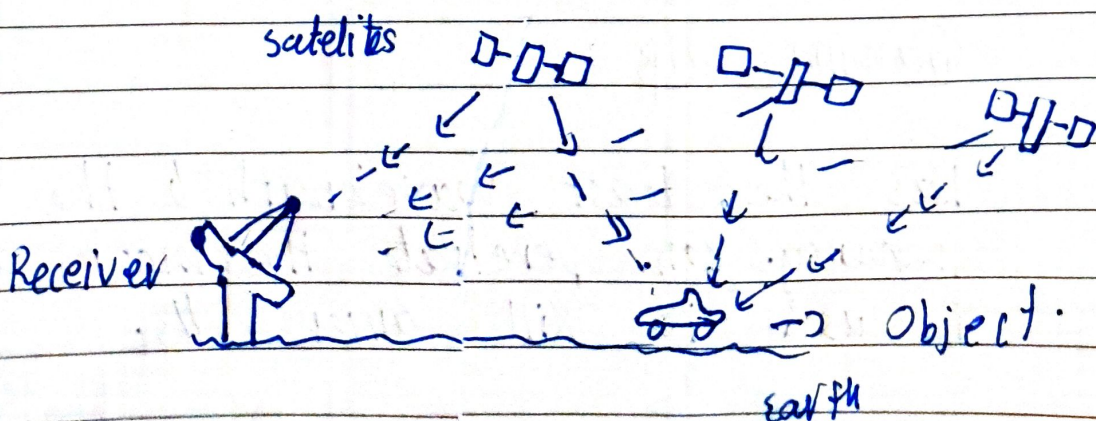 satelites
Receiver
→ Object.
earth